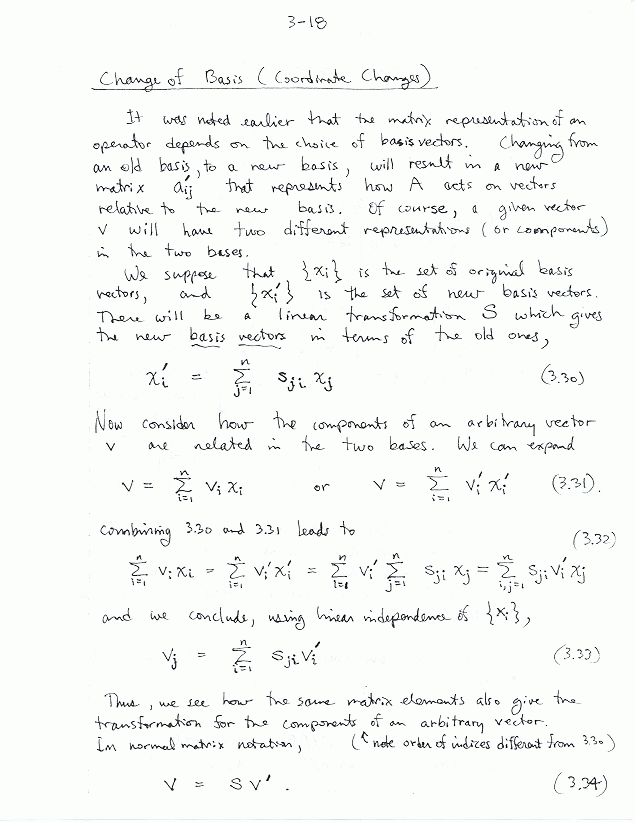 3-18
Change of Basis (Coordinate Changes)
It was noted earlier that the matrix representation of an
operator depends on the choice of basis vectors. Changing from
an old basis, to a new basis, will result in a new
matrix a'ij that represents how A acts on vectors
relative to the new basis. Of course, a given vector
v will have two different representations (or components)
in the two bases.
We suppose that {xi} is the set of original basis
vectors, and {xi'} is the set of new basis vectors.
There will be a linear transformation S which gives
the new basis vectors in terms of the old ones,
xi' = Σ_{j=1}^{n} sji xj (3.30)
Now consider how the components of an arbitrary vector
v are related in the two bases. We can expand
v = Σ_{i=1}^{n} vi xi or v = Σ_{i=1}^{n} vi' xi' (3.31).
Combining 3.30 and 3.31 leads to (3.32)
Σ_{i=1}^{n} vi xi = Σ_{i=1}^{n} vi' xi' = Σ_{i=1}^{n} vi' Σ_{j=1}^{n} sji xj = Σ_{i,j=1}^{n} sji vi' xj
and we conclude, using linear independence of {xi},
vj = Σ_{i=1}^{n} sji vi' (3.33)
Thus, we see how the same matrix elements also give the
transformation for the components of an arbitrary vector.
In normal matrix notation, (↑ note order of indices different from 3.30)
v = S v'. (3.34)